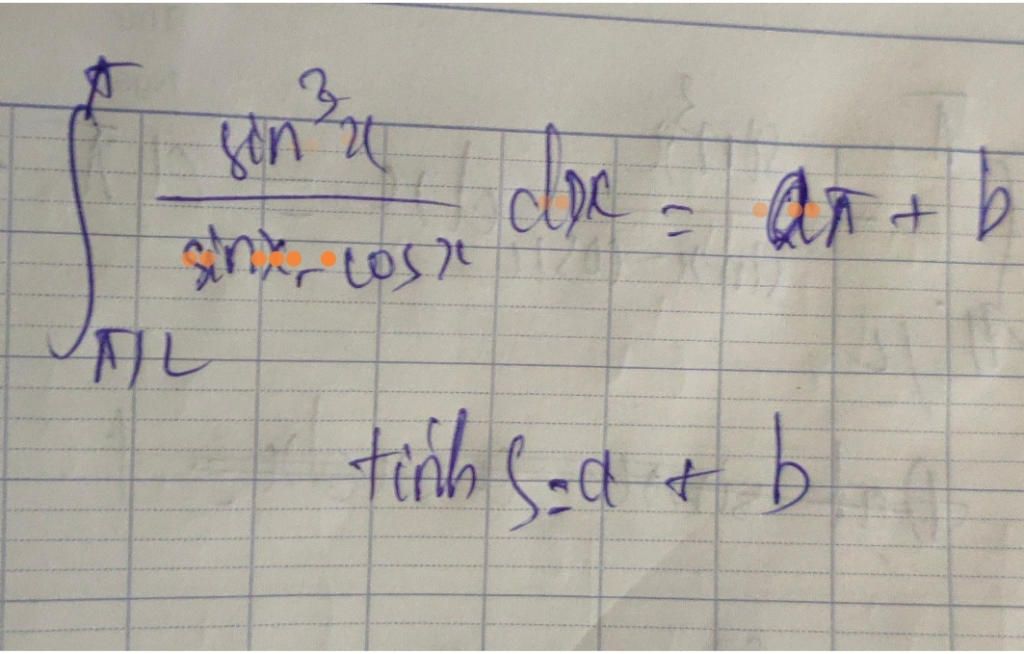 ∫_{π/2}^{π} \frac{sin³x}{sinx - cosx} dx = aπ + b
tính S = a + b